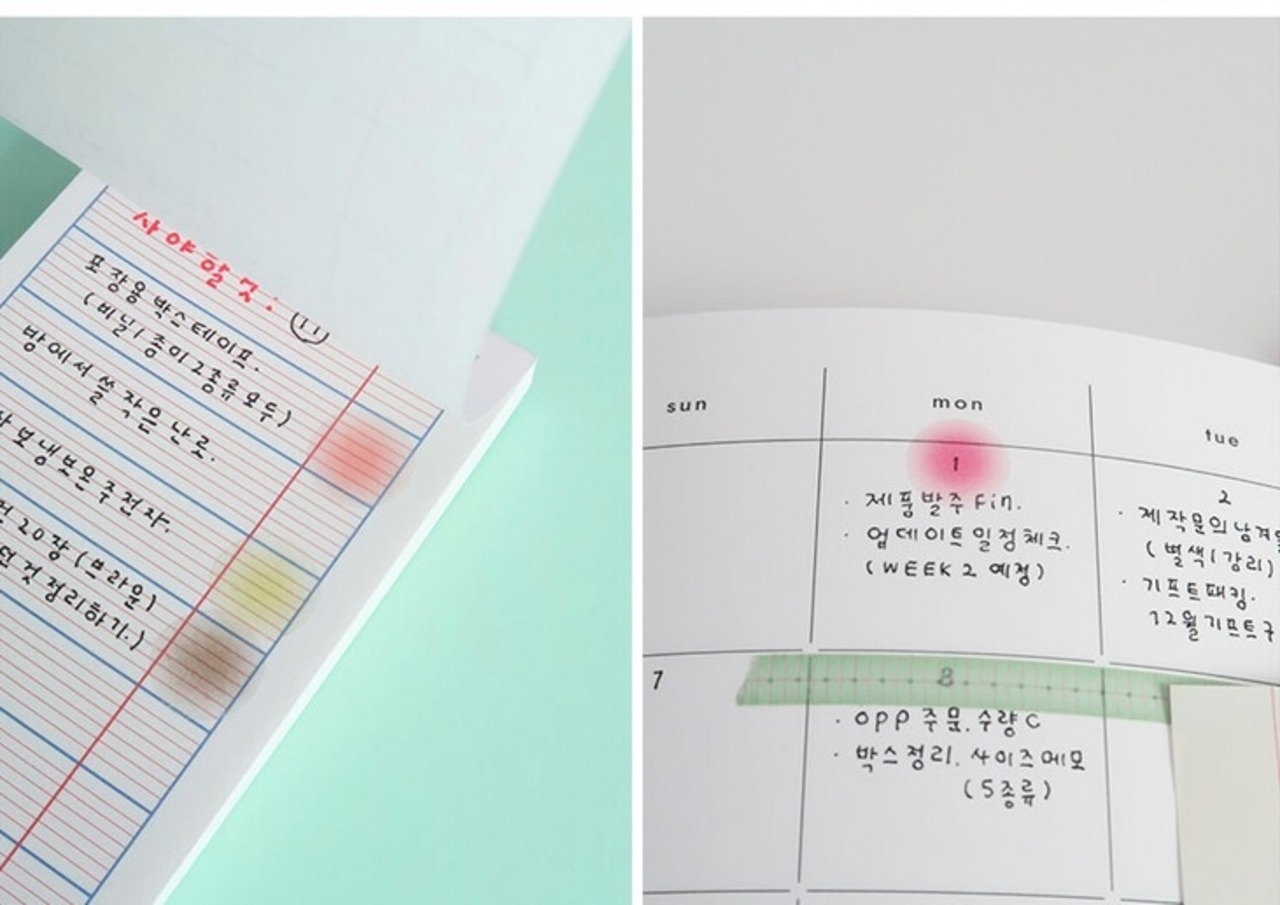 사야할것:
포장용 박스테이프.
(비닐/종이 2종류모두)
방에서 쓸 작은 난로.
보냉보온주전자.
20장 (브라운)
것 정리하기.)
sun
mon
tue
1
· 제품발주 Fin.
· 업데이트일정체크.
(WEEK 2 예정)
2
· 제작문의남겨
(별색/감리)
· 기프트패킹.
12월기프트구
7
8
· OPP 주문. 수량C
· 박스정리. 사이즈메모
(5종류)